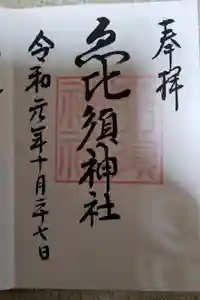 奉拝
恵比須神社
令和元年十月二十七日